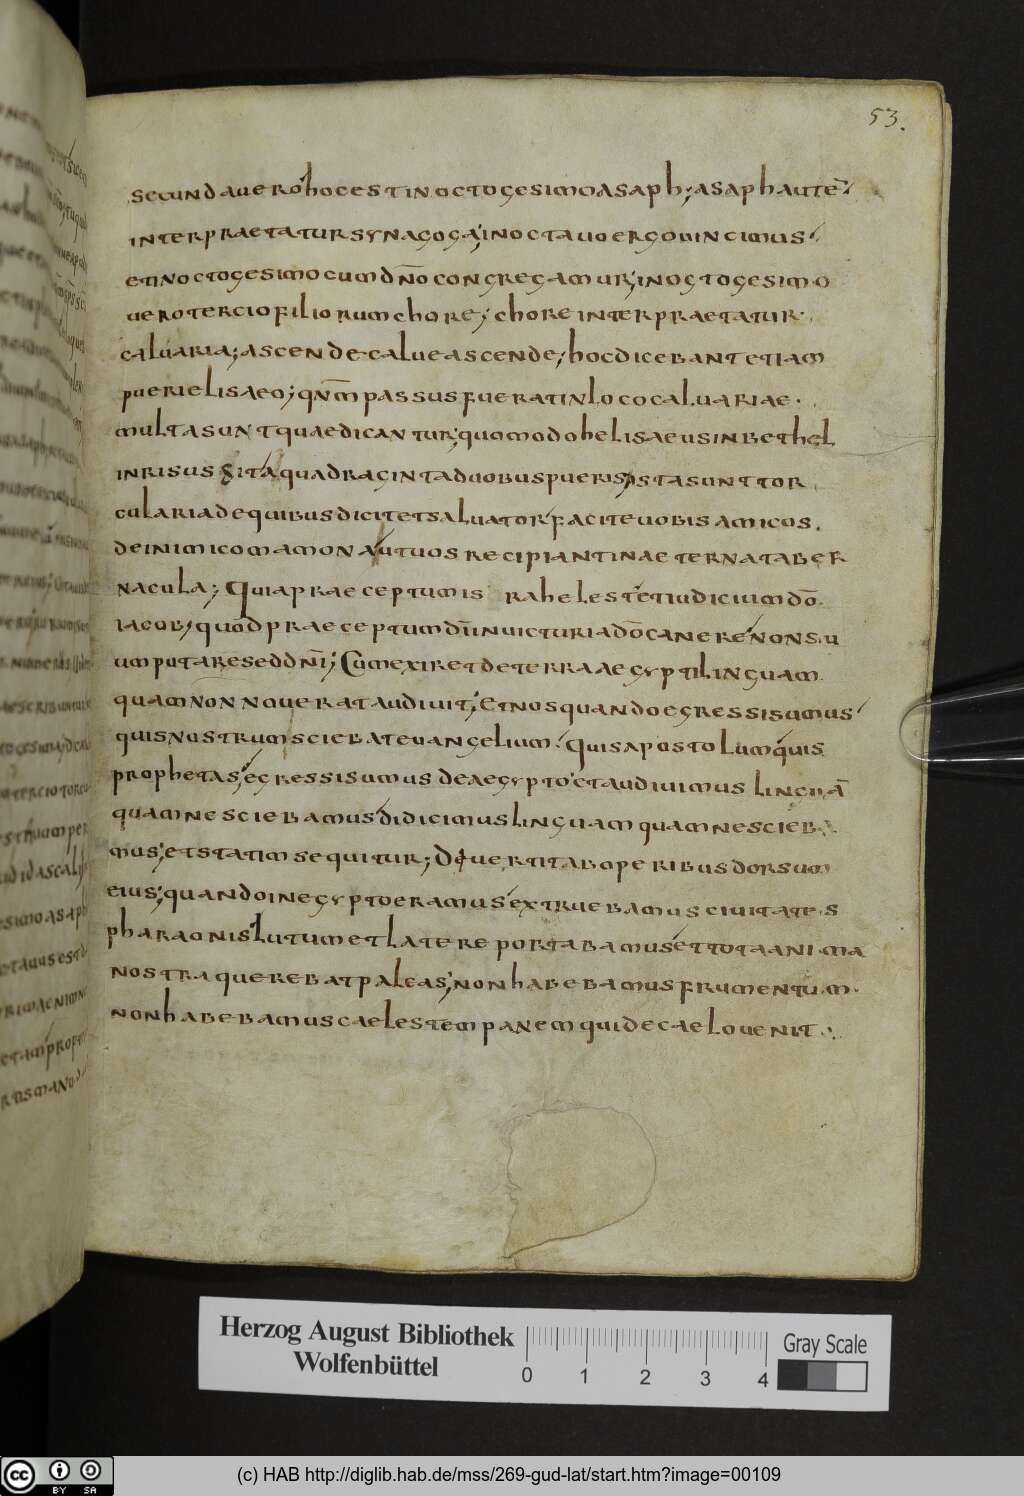 53.
secunda uero hoc est in octogesimo asaph; asaph aute͞
interpraetatur synagoga; in octauo ergo uincimus
et in octogesimo cum dn͞o congregamur; in octogesimo
uero tercio filiorum chore; chore interpraetatur
caluaria; ascende calue ascende; hoc dicebant etiam
pueri elisaeo; qn͞m passus fuerat in loco caluariae.
multa sunt quae dicantur; quomodo heliseus in bethel
inrisus sit a quadraginta duobus pueris; ista sunt tor
cularia de quibus dicit et saluator; facite uobis amicos.
de inimico mamona ut uos recipiant in aeterna taber
nacula; Quia praeceptum isrl est et iudicium dō
iacob; quod praeceptum dn͞i in uicturia dō canere; non suu
um putare sed dn͞i; Cum exiret de terra aegypti linguam
quam non nouerat audiuit; Et nos quando egressi sumus
quis nostrum sciebat euangelium; quis apostolum quis
prophetas; egressi sumus de aegypto et audiuimus linguā
quam nesciebamus didicimus linguam quam nescieba
mus; et statim sequitur; Diuertit ab operibus dorsum
eius; quando in egypto eramus extruebamus ciuitates
pharaonis; lutum et latere portabamus et tota anima
nostra querebat paleas; non habebamus frumentum.
non habebamus caelestem panem qui de caelo uenit.
Herzog August Bibliothek
Wolfenbüttel
0 1 2 3 4
Gray Scale
cc BY SA
(c) HAB http://diglib.hab.de/mss/269-gud-lat/start.htm?image=00109